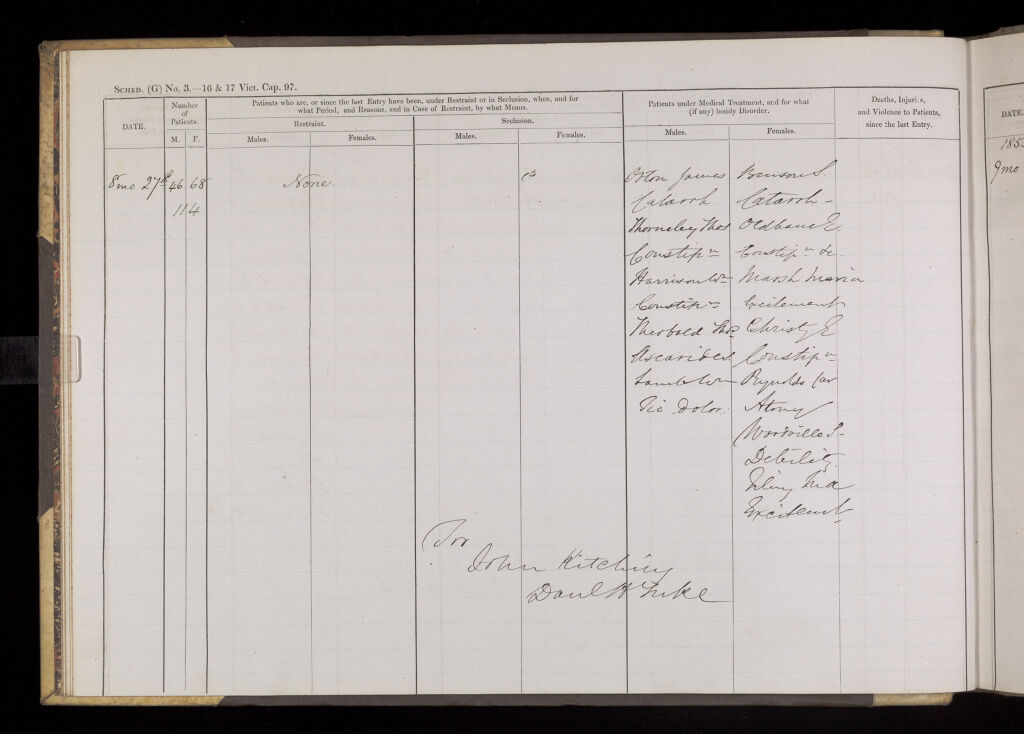 SCHED. (G) No. 3.—16 & 17 Vict. Cap. 97.
DATE.
Number of Patients.
M. F.
Patients who are, or since the last Entry have been, under Restraint or in Seclusion, when, and for
what Period, and Reasons, and in Case of Restraint, by what Means.
Restraint.
Males. Females.
Seclusion.
Males. Females.
Patients under Medical Treatment, and for what
(if any) bodily Disorder.
Males. Females.
Deaths, Injuries,
and Violence to Patients,
since the last Entry.
DATE
185
8 mo 27th 46 68 None
114
9 mo
Orton James
Catarrh Catarrh
Thornley Thos
Constipn Constipn &c.
Harrison Wm Marsh Maria
Constipn Excitement
Theobald Thos Christy E
Ascarides Constipn
Lamb Wm Reynolds Car
Tic Dolor. Atony
Woodville S
Debility
Excitemt
For
John Kitching
Danl H Tuke